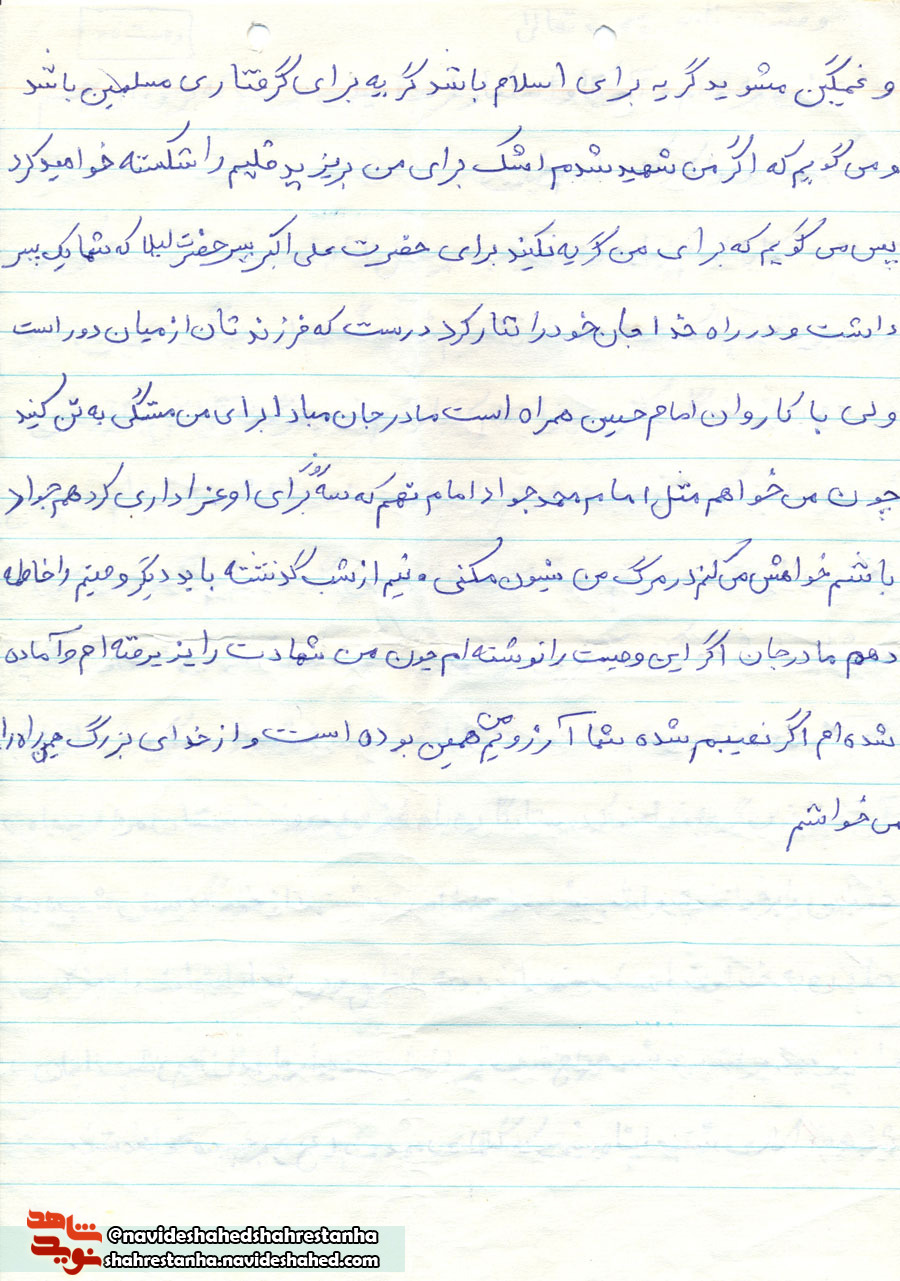 و غمیگن مشوید گریه برای اسلام باشد گریه برای گرفتاری مسلمین باشد
و می گویم که اگر من شهید شدم اشک برای من بریزید قلبم را شکسته خواهید کرد
پس می گویم که برای من گریه نکنید برای حضرت علی اکبر پسر حضرت لیلا که شما یک پسر
داشت و در راه خدا جان خود را نثار کرد درست که فرزندتان از میان دور است
ولی با کاروان امام حسین همراه است مادر جان مبادا برای من مشگی به تن کنید
چون می خواهم مثل امام محمد جواد امام نهم که سه روز برای او عزاداری کرد هم جواد
باشم خواهش می کنم در مرگ من شیون مکنی و نیم از شب گذشته باید دیگر وصیتم را خاطمه
دهم مادر جان اگر این وصیت را نوشته ام چون من شهادت را پذیرفته ام و آماده
شده ام اگر نصیبم شده شما آرزویم من همین بوده است و از خدای بزرگ همین راه را
می خواشم
شاهد
نوید
@navideshahedshahrestanha
shahrestanha.navideshahed.com